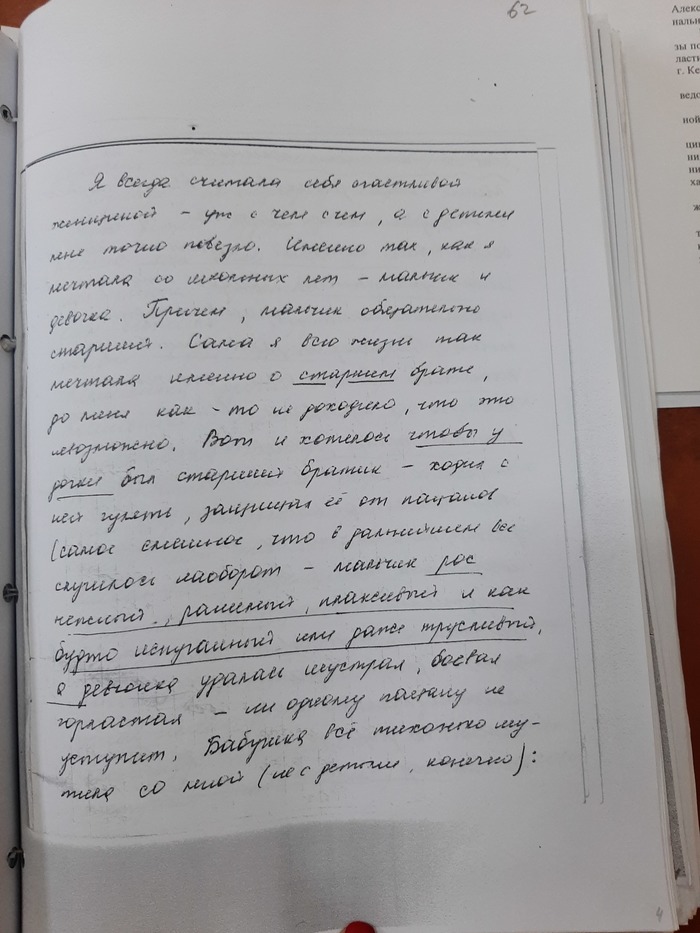 62
Я всегда считала себя счастливой
женщиной – уж с чем с чем, а с детьми
мне точно повезло. Именно так, как я
мечтала со школьных лет – мальчик и
девочка. Причем, мальчик обязательно
старший. Сама я всю жизнь так
мечтала именно о старшем брате,
до меня как-то не доходило, что это
невозможно. Вот и хотелось чтобы у
дочки был старший братик – ходил с
ней гулять, защищал её от пацанов
(самое смешное, что в дальнейшем все
случилось наоборот – мальчик рос
нежный, ранимый, плаксивый и как
будто испуганный или даже трусливый,
а девчонка удалая шустрая, боевая
горластая – ни одному пацану не
уступит. Бабушка всё тихонько шу-
тила со мной (не с детьми, конечно):
4
Алекс
нальн
зы по
ласти
г. Ке
ведо
ной
ци
ни
ни
ха
ж
т